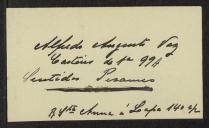 Alfredo Augusto Vaz
Carteiro de 1ª 99
Sentidos Pesames
R. Stª Anna á Lapa 140